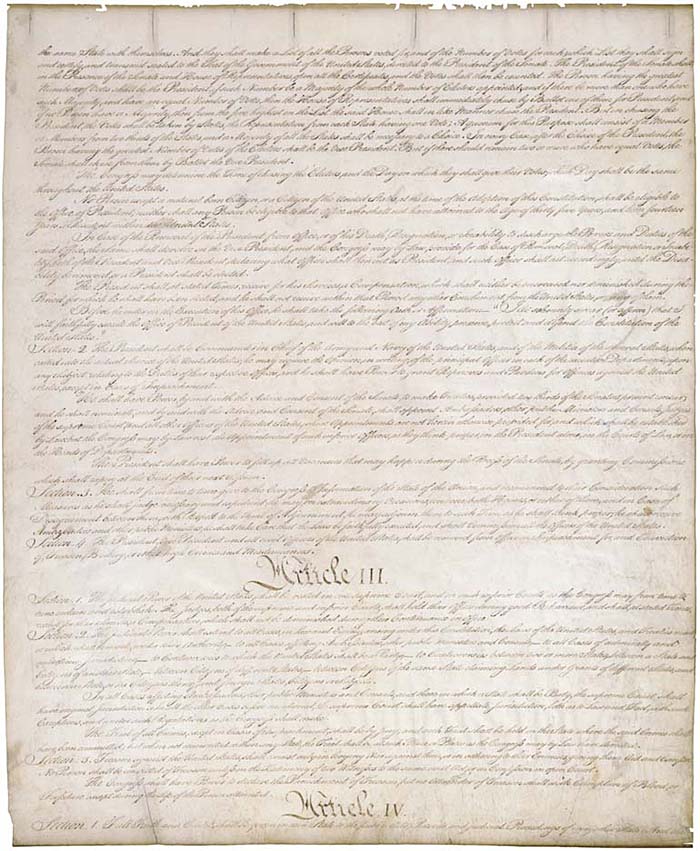 the same State with themselves. And they shall make a List of all the Persons voted for, and of the Number of Votes for each; which List they shall sign
and certify, and transmit sealed to the Seat of the Government of the United States, directed to the President of the Senate. The President of the Senate shall,
in the Presence of the Senate and House of Representatives, open all the Certificates, and the Votes shall then be counted. The Person having the greatest
Number of Votes shall be the President, if such Number be a Majority of the whole Number of Electors appointed; and if there be more than one who have
such Majority, and have an equal Number of Votes, then the House of Representatives shall immediately chuse by Ballot one of them for President; and
if no Person have a Majority, then from the five highest on the List the said House shall in like Manner chuse the President. But in chusing the
President, the Votes shall be taken by States, the Representation from each State having one Vote; A quorum for this Purpose shall consist of a Member
or Members from two thirds of the States, and a Majority of all the States shall be necessary to a Choice. In every Case, after the Choice of the President, the
Person having the greatest Number of Votes of the Electors shall be the Vice President. But if there should remain two or more who have equal Votes, the
Senate shall chuse from them by Ballot the Vice President.
The Congress may determine the Time of chusing the Electors, and the Day on which they shall give their Votes; which Day shall be the same
throughout the United States.
No Person except a natural born Citizen, or a Citizen of the United States, at the time of the Adoption of this Constitution, shall be eligible to
the Office of President; neither shall any Person be eligible to that Office who shall not have attained to the Age of thirty five Years, and been fourteen
Years a Resident within the United States.
In Case of the Removal of the President from Office, or of his Death, Resignation, or Inability to discharge the Powers and Duties of the
said Office, the Same shall devolve on the Vice President, and the Congress may by Law provide for the Case of Removal, Death, Resignation or Inability,
both of the President and Vice President, declaring what Officer shall then act as President, and such Officer shall act accordingly, until the Disa-
bility be removed, or a President shall be elected.
The President shall, at stated Times, receive for his Services, a Compensation, which shall neither be encreased nor diminished during the
Period for which he shall have been elected, and he shall not receive within that Period any other Emolument from the United States, or any of them.
Before he enter on the Execution of his Office, he shall take the following Oath or Affirmation: "I do solemnly swear (or affirm) that I
will faithfully execute the Office of President of the United States, and will to the best of my Ability, preserve, protect and defend the Constitution of the
United States.
Section. 2. The President shall be Commander in Chief of the Army and Navy of the United States, and of the Militia of the several States, when
called into the actual Service of the United States; he may require the Opinion, in writing, of the principal Officer in each of the executive Departments, upon
any Subject relating to the Duties of their respective Offices, and he shall have Power to grant Reprieves and Pardons for Offences against the United
States, except in Cases of Impeachment.
He shall have Power, by and with the Advice and Consent of the Senate, to make Treaties, provided two thirds of the Senators present concur;
and he shall nominate, and by and with the Advice and Consent of the Senate, shall appoint Ambassadors, other public Ministers and Consuls, Judges
of the supreme Court, and all other Officers of the United States, whose Appointments are not herein otherwise provided for, and which shall be established
by Law: but the Congress may by Law vest the Appointment of such inferior Officers, as they think proper, in the President alone, in the Courts of Law, or in
the Heads of Departments.
The President shall have Power to fill up all Vacancies that may happen during the Recess of the Senate, by granting Commissions
which shall expire at the End of their next Session.
Section. 3. He shall from time to time give to the Congress Information of the State of the Union, and recommend to their Consideration such
Measures as he shall judge necessary and expedient; he may, on extraordinary Occasions, convene both Houses, or either of them, and in Case of
Disagreement between them, with Respect to the Time of Adjournment, he may adjourn them to such Time as he shall think proper; he shall receive
Ambassadors and other public Ministers; he shall take Care that the Laws be faithfully executed, and shall Commission all the Officers of the United States.
Section. 4. The President, Vice President and all civil Officers of the United States, shall be removed from Office on Impeachment for, and Conviction
of, Treason, Bribery, or other high Crimes and Misdemeanors.
Article III.
Section. 1. The judicial Power of the United States, shall be vested in one supreme Court, and in such inferior Courts as the Congress may from time to
time ordain and establish. The Judges, both of the supreme and inferior Courts, shall hold their Offices during good Behaviour, and shall, at stated Times,
receive for their Services, a Compensation, which shall not be diminished during their Continuance in Office.
Section. 2. The judicial Power shall extend to all Cases, in Law and Equity, arising under this Constitution, the Laws of the United States, and Treaties made,
or which shall be made, under their Authority;
between Citizens of different States, between Citizens of the same State claiming Lands under Grants of different States, and
In all Cases affecting Ambassadors, other public Ministers and Consuls, and those in which a State shall be Party, the supreme Court shall
have original Jurisdiction. In all the other Cases before mentioned, the supreme Court shall have appellate Jurisdiction, both as to Law and Fact, with such
Exceptions, and under such Regulations as the Congress shall make.
The Trial of all Crimes, except in Cases of Impeachment, shall be by Jury; and such Trial shall be held in the State where the said Crimes shall
have been committed; but when not committed within any State, the Trial shall be at such Place or Places as the Congress may by Law have directed.
Section. 3. Treason against the United States, shall consist only in levying War against them, or in adhering to their Enemies, giving them Aid and Comfort.
No Person shall be convicted of Treason unless on the Testimony of two Witnesses to the same overt Act, or on Confession in open Court.
The Congress shall have Power to declare the Punishment of Treason, but no Attainder of Treason shall work Corruption of Blood, or
Forfeiture except during the Life of the Person attainted.
Article IV.
Section. 1. Full Faith and Credit shall be given in each State to the public Acts, Records, and judicial Proceedings of every other State.